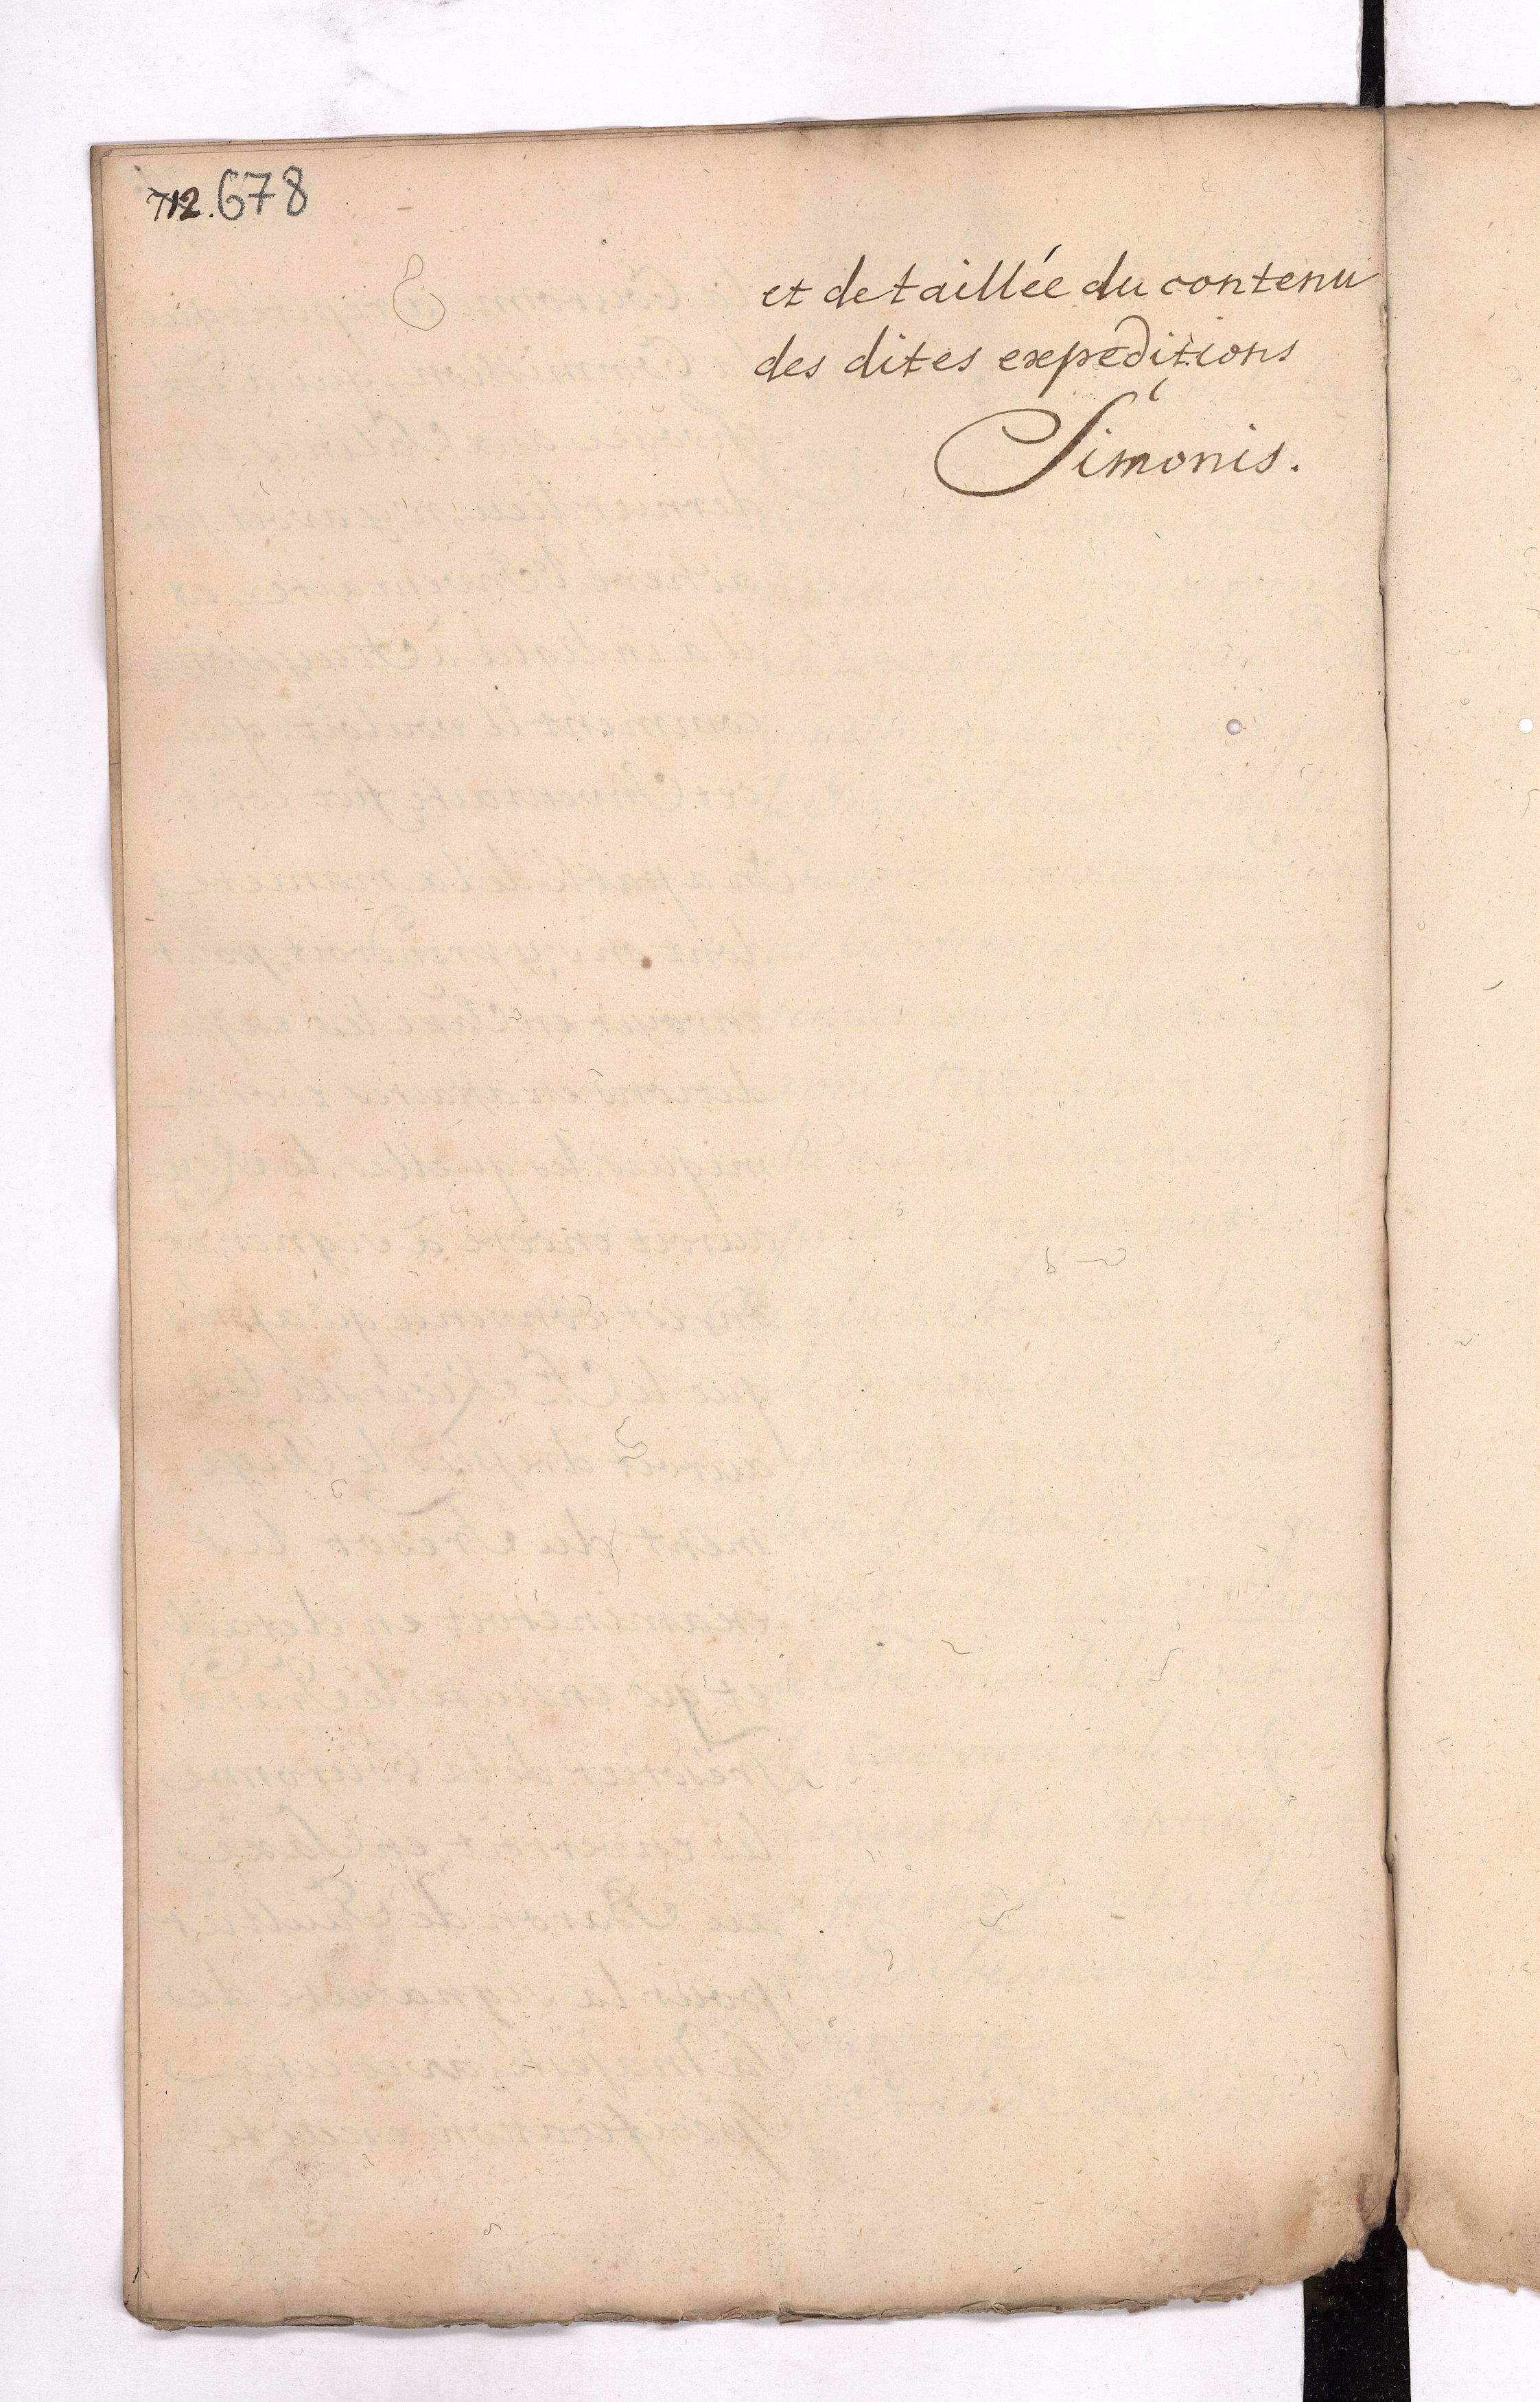 712. 678
et detaillée du contenu
des dites expeditions
Simonis.